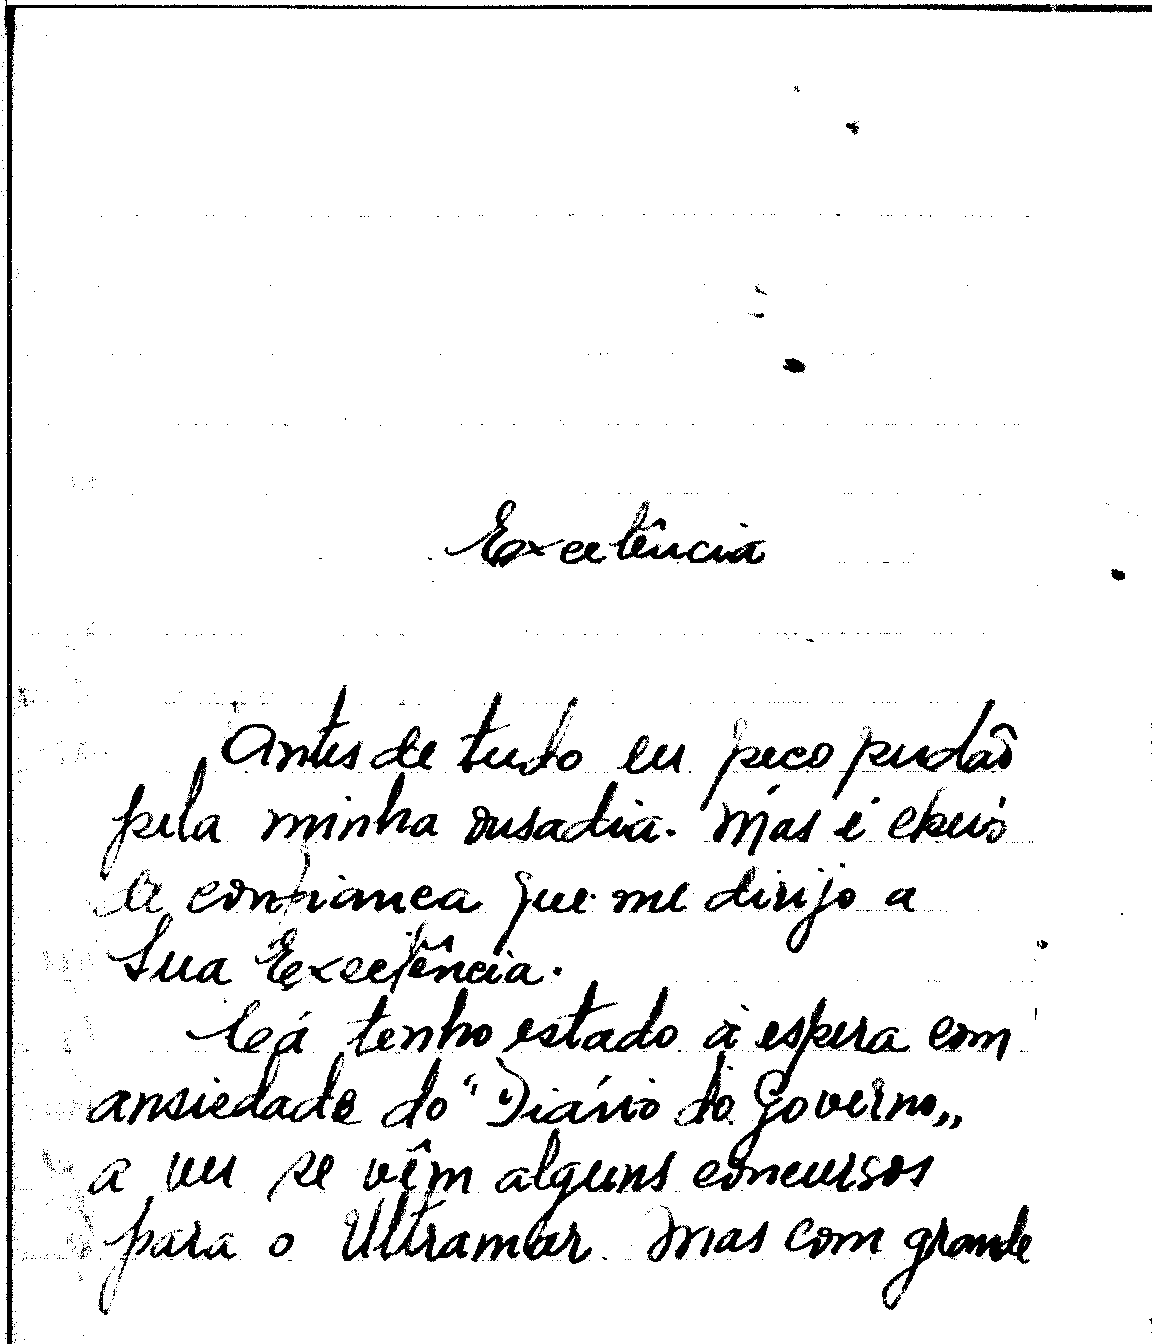 Excelência
Antes de tudo eu peço perdão
pela minha ousadia. Mas é cheio
de confiança que me dirijo a
Sua Excelência.
Cá tenho estado à espera com
ansiedade do "Diário do Governo„
a ver se vêm alguns concursos
para o Ultramar. Mas com grande